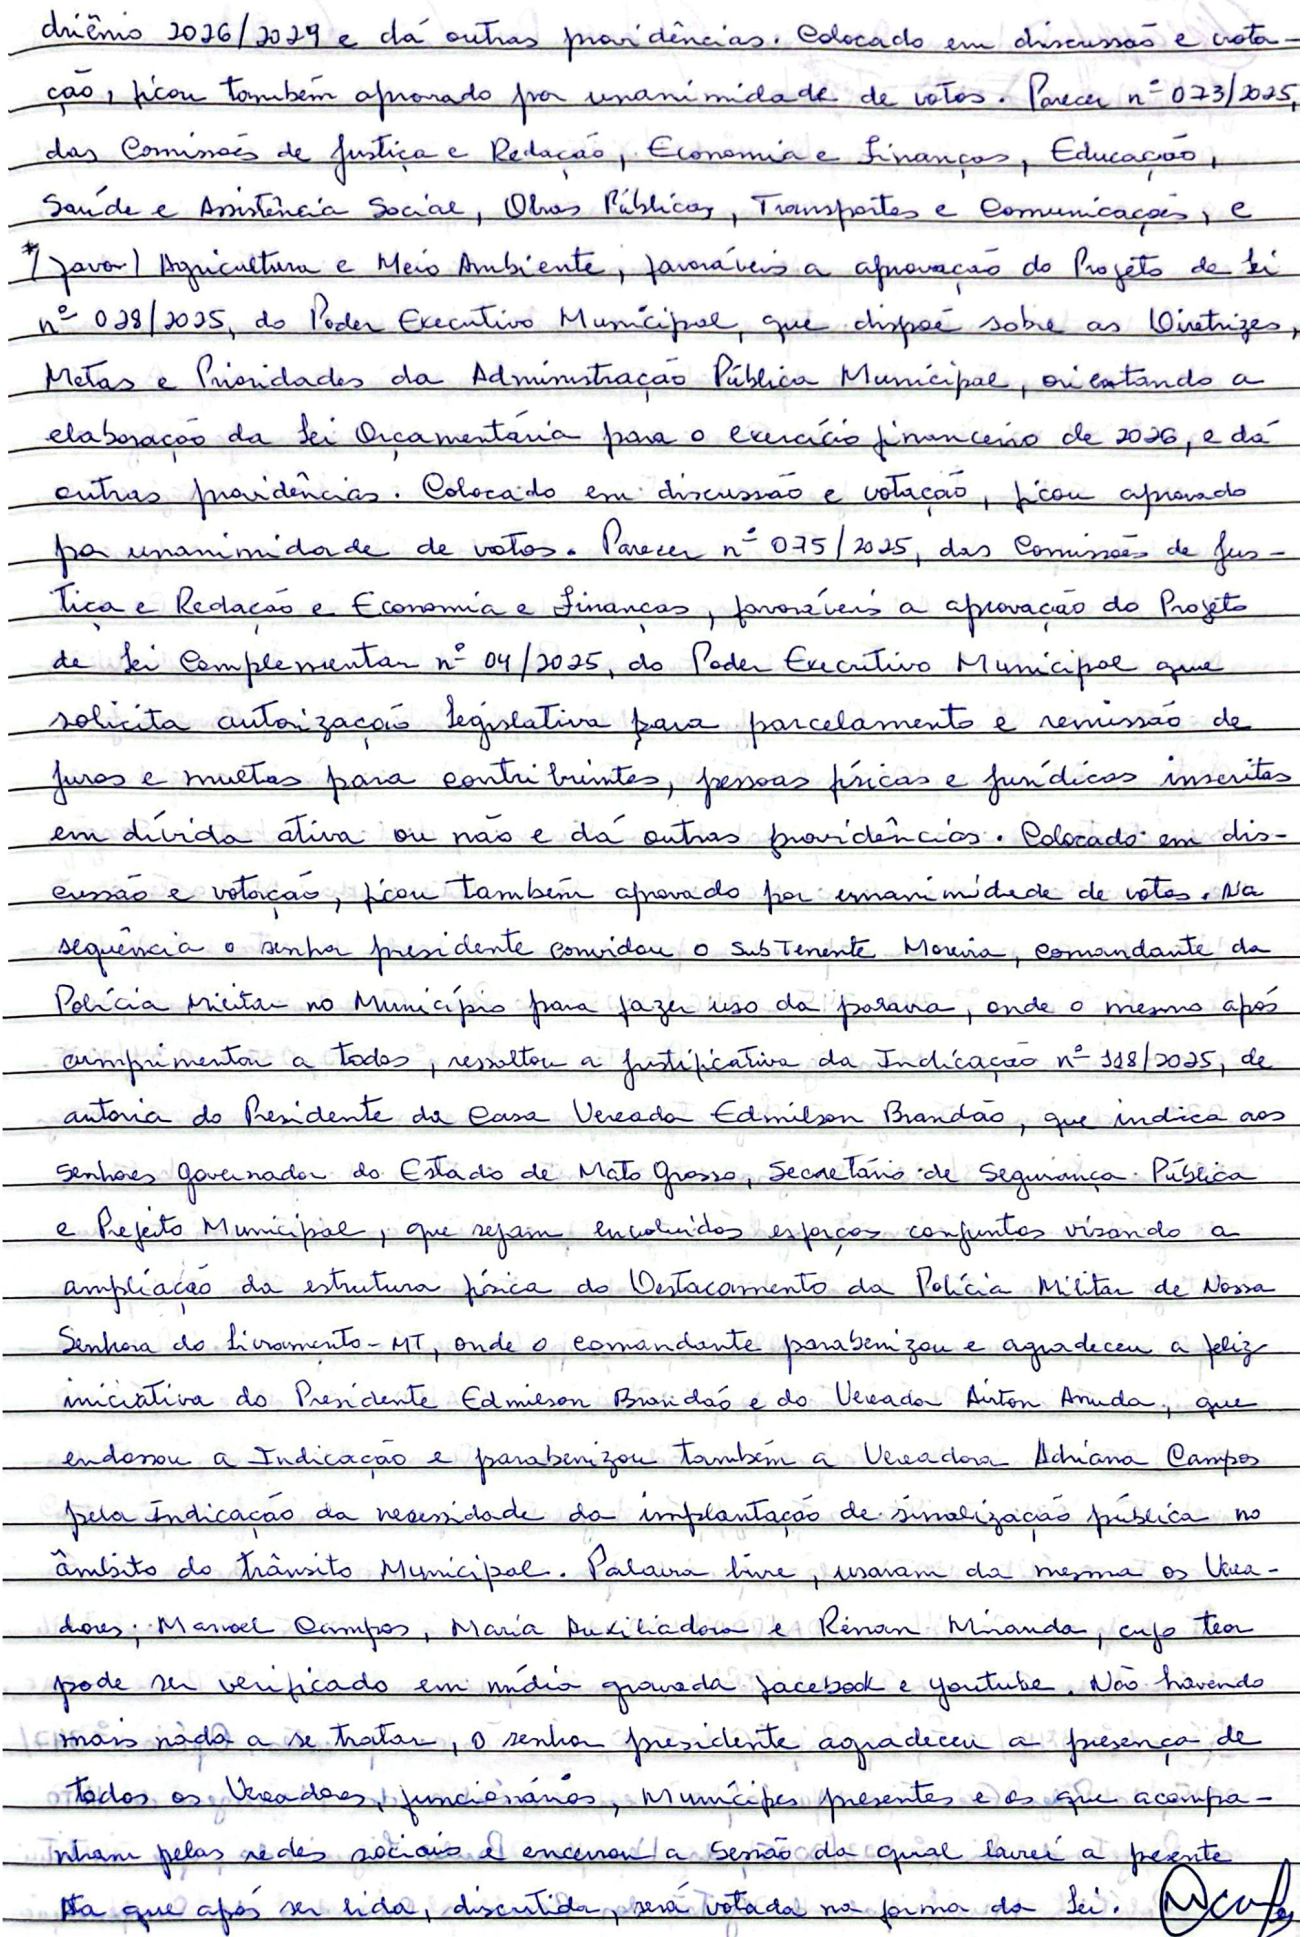 driênio 2026/2029 e dá outras providências. Colocado em discussão e vota-
ção, ficou também aprovado por unanimidade de votos. Parecer nº 073/2025,
das Comissões de Justiça e Redação, Economia e Finanças, Educação,
Saúde e Assistência Social, Obras Públicas, Transportes e Comunicações, e
*(favor) Agricultura e Meio Ambiente, favoráveis a aprovação do Projeto de Lei
nº 028/2025, do Poder Executivo Municipal, que dispõe sobre as Diretrizes,
Metas e Prioridades da Administração Pública Municipal, orientando a
elaboração da Lei Orçamentária para o exercício financeiro de 2026, e dá
outras providências. Colocado em discussão e votação, ficou aprovado
por unanimidade de votos. Parecer nº 075/2025, das Comissões de Jus-
tiça e Redação e Economia e Finanças, favoráveis a aprovação do Projeto
de Lei Complementar nº 04/2025, do Poder Executivo Municipal que
solicita autorização legislativa para parcelamento e remissão de
juros e multas para contribuintes, pessoas físicas e jurídicas inscritas
em dívida ativa ou não e dá outras providências. Colocado em dis-
cussão e votação, ficou também aprovado por unanimidade de votos. Na
sequência o senhor presidente convidou o SubTenente Moreira, comandante da
Polícia Militar no Município para fazer uso da palavra, onde o mesmo após
cumprimentar a todos, ressaltou a justificativa da Indicação nº 118/2025, de
autoria do Presidente da Casa Vereador Edmilson Brandão, que indica aos
senhores Governador do Estado de Mato Grosso, Secretário de Segurança Pública
e Prefeito Municipal, que sejam envolvidos esforços conjuntos visando a
ampliação da estrutura física do Destacamento da Polícia Militar de Nossa
Senhora do Livramento-MT, onde o comandante parabenizou e agradeceu a feliz
iniciativa do Presidente Edmilson Brandão e do Vereador Airton Arruda, que
endossou a Indicação e parabenizou também a Vereadora Adriana Campos
pela Indicação da necessidade da implantação de sinalização pública no
âmbito do trânsito Municipal. Palavra livre, usaram da mesma os Verea-
dores; Manoel Campos, Maria Auxiliadora e Renan Miranda, cujo teor
pode ser verificado em mídia gravada facebook e youtube. Não havendo
mais nada a se tratar, o senhor presidente agradeceu a presença de
todos os Vereadores, funcionários, Munícipes presentes e os que acompa-
nham pelas redes sociais e encerrou a Sessão da qual lavrei a presente
Ata que após ser lida, discutida, será votada na forma da Lei.